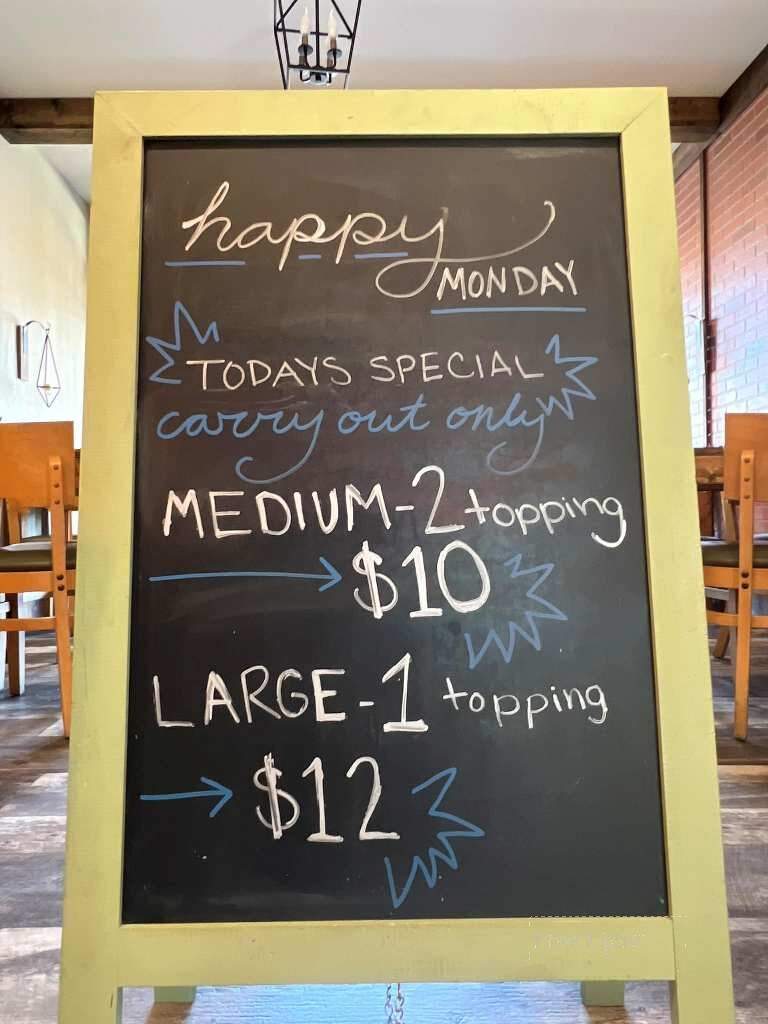 happy
MONDAY
TODAYS SPECIAL
carry out only
MEDIUM-2 topping
$10
LARGE-1 topping
$12